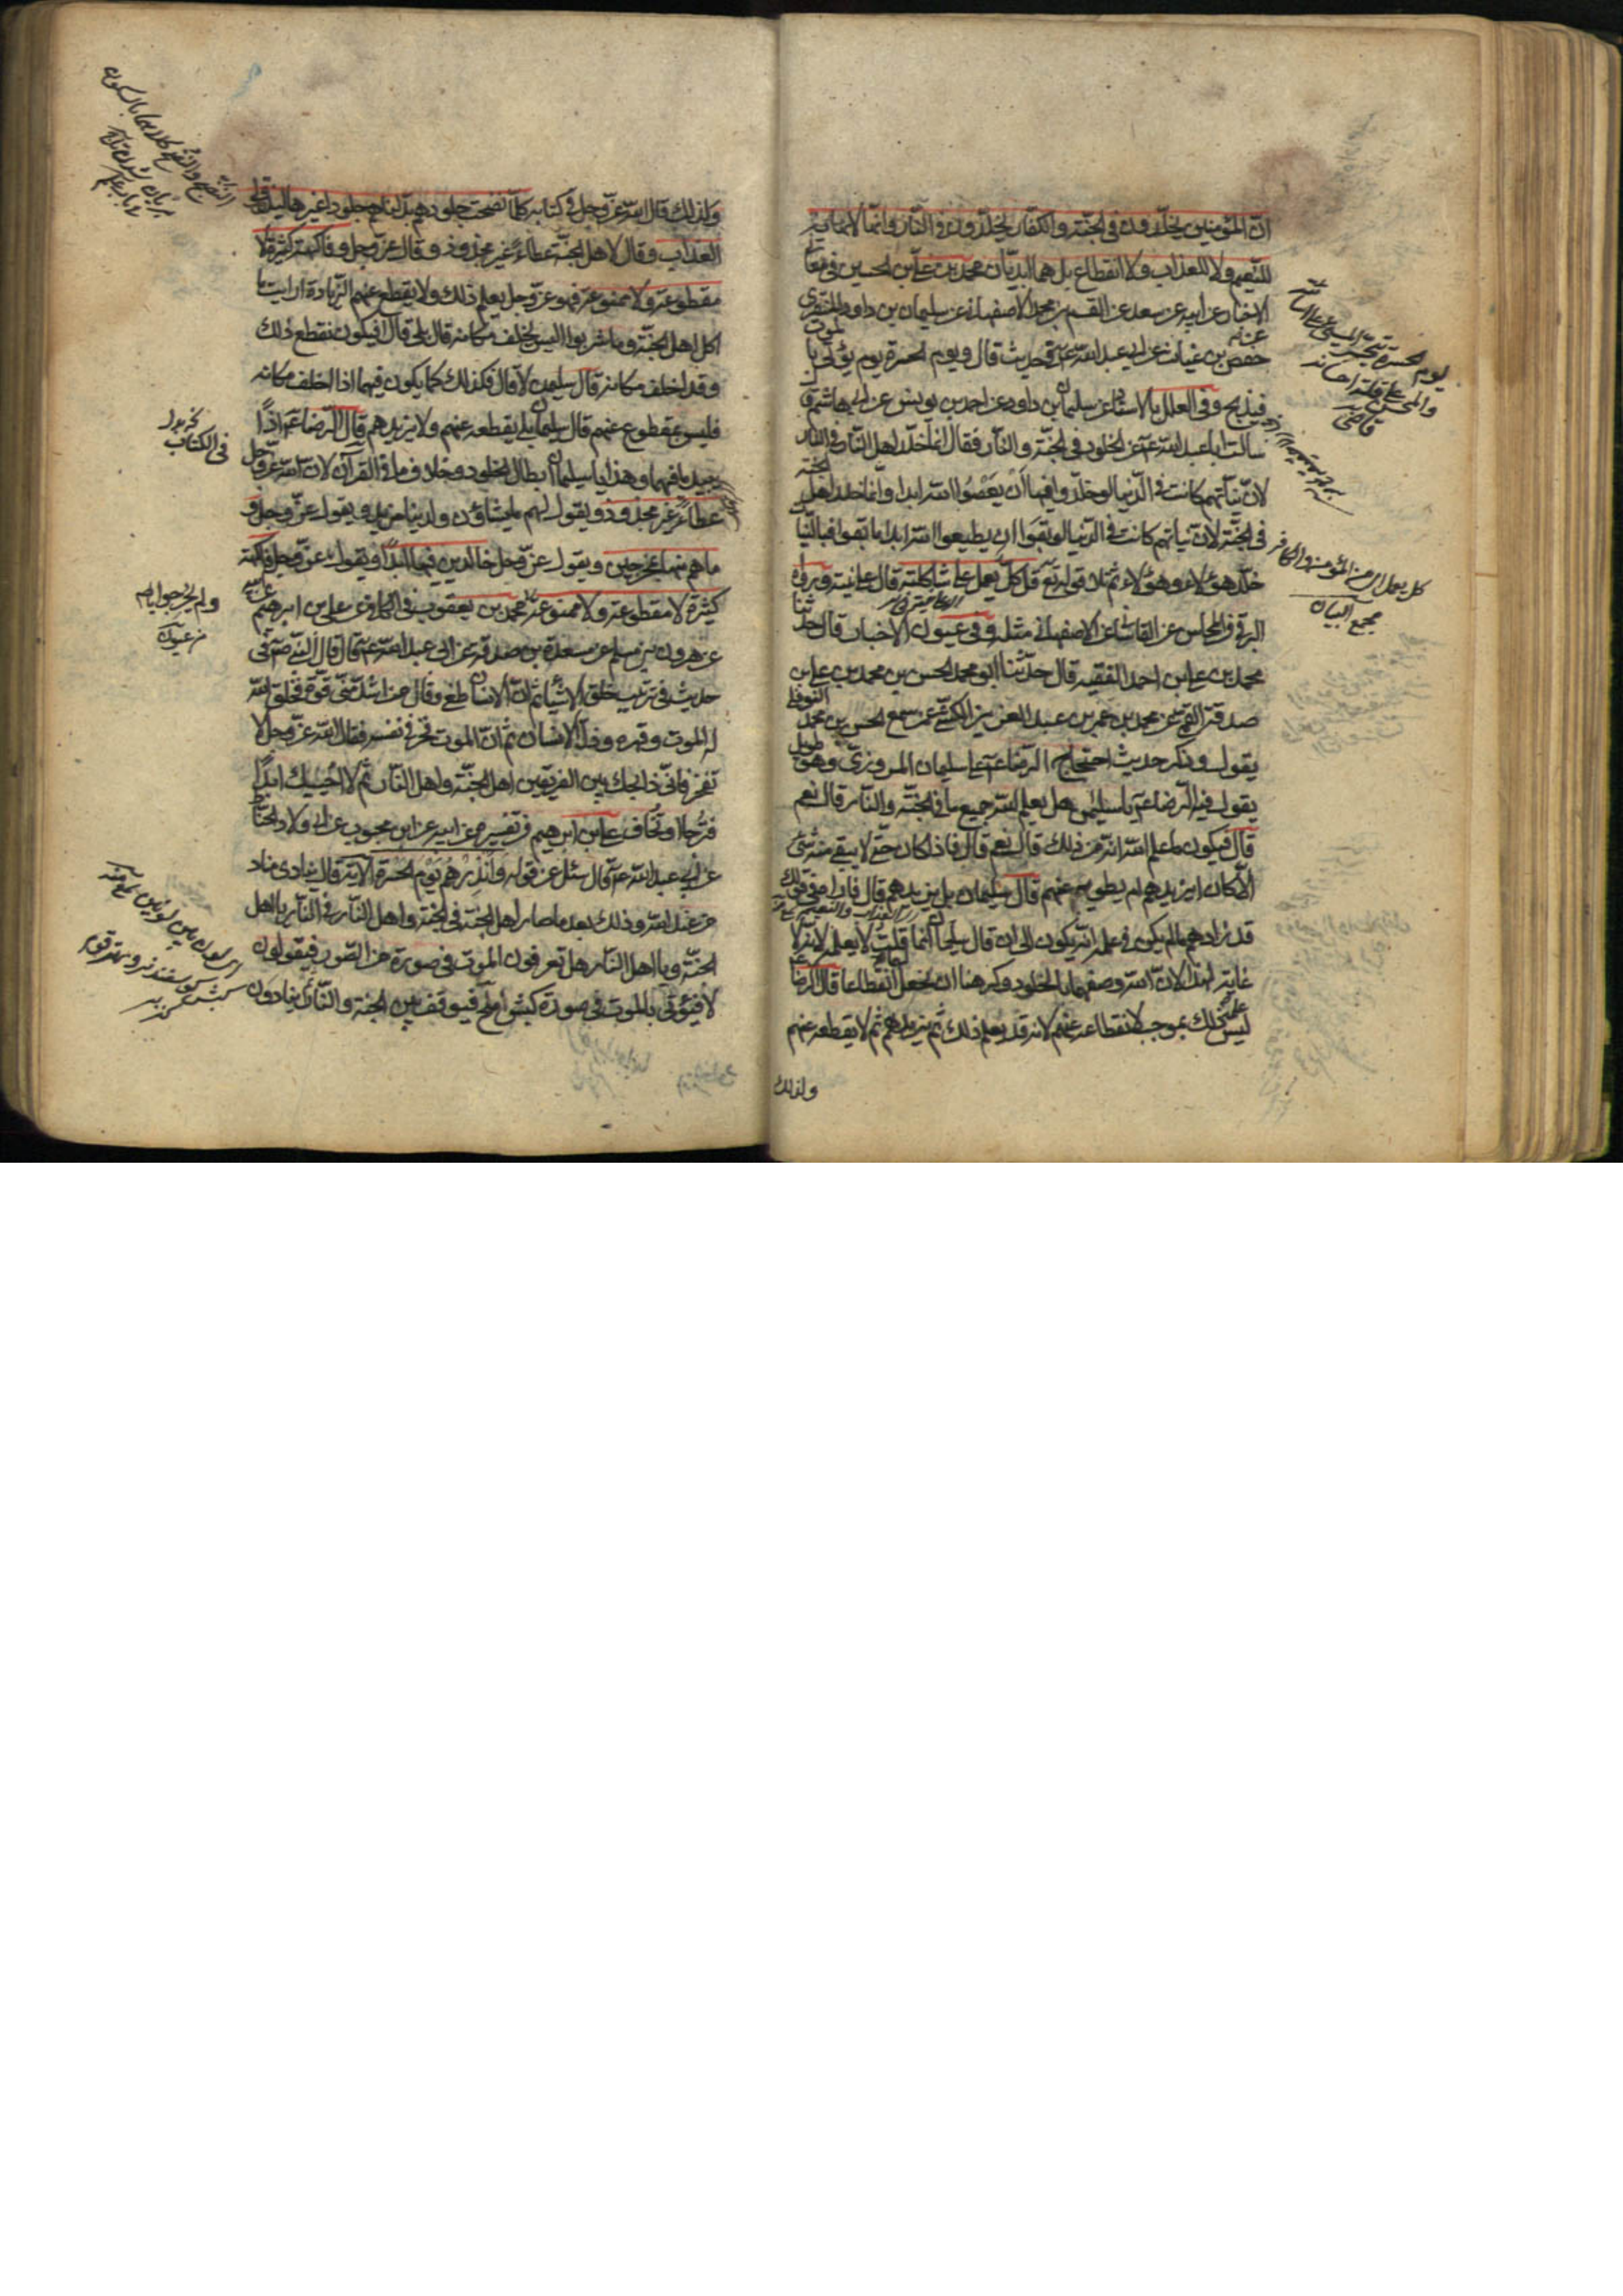 انّ المؤمنين يخلّدون في الجنّة والكفّار يخلّدون في النّار وانّما لانهاية
للنّعيم ولا للعذاب ولا انقطاع بل هما ابديّان محمد بن علي بن الحسين في معاني
الاخبار عن ابيه عن سعد عن القسم بن محمد الاصفهاني عن سليمان بن داود المنقري
حفص بن غياث عن ابي عبد الله ع في حديث قال ويوم الحسرة يوم يؤتى بالموت
فيذبح وفي العلل بالاسناد عن سليمان بن داود عن احمد بن يونس عن ابي هاشم قال
سالت ابا عبد الله ع عن الخلود في الجنّة والنار فقال انما خلّد اهل النّار في النار
لانّ نيّاتهم كانت في الدّنيا لو خلّدوا فيها ان يعصوا الله ابدا وانّما خلد اهل الجنة
في الجنّة لانّ نيّاتهم كانت في الدّنيا لو بقوا ان يطيعوا الله ابدا ما بقوا فبالنيّات
خلّد هؤلاء وهؤلاء ثم تلا قوله تع قل كلّ يعمل على شاكلته قال على نيته ورواه
البرقي في المحاسن عن القاساني عن الاصفهاني مثله وفي عيون الاخبار قال حدثنا
محمد بن علي بن احمد الفقيه قال حدّثنا ابو محمد الحسن بن محمد بن علي بن
صدقة القمي عن محمد بن عمر بن عبد العزيز الكشّي عمن سمع الحسن بن محمد النوفلي
يقول وذكر حديث احتجاج الرّضا ع على سليمان المروزيّ وهو طويل
يقول فيه الرّضا ع يا سليمان هل يعلم الله جميع ما في الجنّة والنّار قال نعم
قال فيكون ما علم الله انّه من ذلك قال نعم قال فاذا كان حتّى لا يبقى منه شئ
الّا كان ايزيدهم او يطويه عنهم قال سليمان بل يزيدهم قال فاراه في قولك
قد زادهم ما لم يكن في علمه انّه يكون الى ان قال سليمان انما قلت لا يعلمه لانه لا
غاية لهذا لانّ الله وصفهما بالخلود وكرهنا ان نجعل لهما انقطاعا قال الرضا ع
ليس علمه ذلك بموجب لانقطاعه عنهم لانه قد يعلم ذلك ثم يزيدهم ثم لا يقطعه عنهم
ولذلك
كل يعمل اي من المؤمن والكافر
مجمع البيان
ولذلك قال الله عزّ وجل في كتابه كلّما نضجت جلودهم بدّلناهم جلودا غيرها ليذوقوا
العذاب وقال لاهل الجنّة عطاءً غير مجذوذ وقال عزّ وجل وفاكهة كثيرة لا
مقطوعة ولا ممنوعة فهو عزّ وجل يعلم ذلك ولا يقطع عنهم الزّيادة ارايت ما
اكل اهل الجنّة وما شربوا اليس يخلف مكانه قال بلى قال افيكون يقطع ذلك
وقد اخلف مكانه قال سليمان لا قال فكذلك كلما يكون فيها اذا اخلف مكانه
فليس بمقطوع عنهم قال سليمان بلى يقطعه عنهم ولا يزيدهم قال الرّضا ع اذًا
يبيد ما فيهما وهذا يا سليمان ابطال الخلود وخلاف ما في القرآن لانّ الله عز وجل
عطاءً غير مجذوذ ويقول لهم ما يشاؤن ولدينا مزيد ويقول عزّ وجل و
ما هم منها بمخرجين ويقول عزّ وجل خالدين فيها ابدًا ويقول عزّ وجل وفاكهة
كثيرة لا مقطوعة ولا ممنوعة محمد بن يعقوب في الكافي عن علي بن ابرهيم
عن هرون بن مسلم عن مسعدة بن صدقة عن ابي عبد الله ع قال قال النّبي ص في
حديث في ترتيب خلق الاشياء ثم انّ الانسان طغى وقال من اشدّ منّي قوّة فخلق الله
له الموت وقهره وذلّ الانسان ثم انّ الموت فخر في نفسه فقال الله عزّ وجل لا
تفخر فانّي ذابحك بين الفريقين اهل الجنّة واهل النّار ثم لا احييك ابدًا
فترجا او تخاف علي بن ابرهيم في تفسيره عن ابيه عن ابن محبوب عن ابي ولاد الحناط
عن ابي عبد الله ع قال سئل عن قوله وانذرهم يوم الحسرة الآية قال ينادي مناد
من عند الله وذلك بعد ما صار اهل الجنّة في الجنة واهل النّار في النّار يا اهل
الجنّة ويا اهل النّار هل تعرفون الموت في صورة من الصّور فيقولون
لا فيؤتى بالموت في صورة كبش املح فيوقف بين الجنة والنّار ثم ينادون
في الكتاب